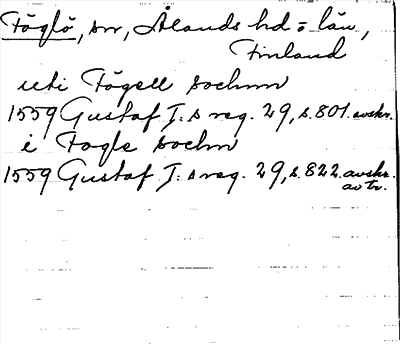 Föglö, sn, Ålands hd o län,
Finland
uti Fögell sochnn
1559 Gustaf I:s reg. 29, s. 801. avskr.
i Fogle sochn
1559 Gustaf I:s reg. 29, s. 822. avskr.
av tr.